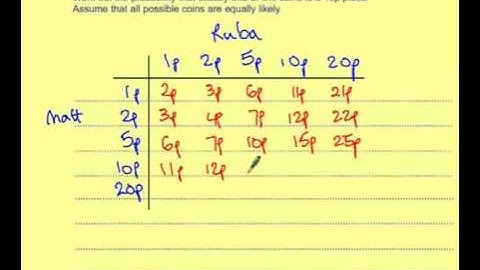 Assume that all possible coins are equally likely.
Ruba
1p 2p 5p 10p 20p
1p 2p 3p 6p 11p 21p
Matt 2p 3p 4p 7p 12p 22p
5p 6p 7p 10p 15p 25p
10p 11p 12p
20p